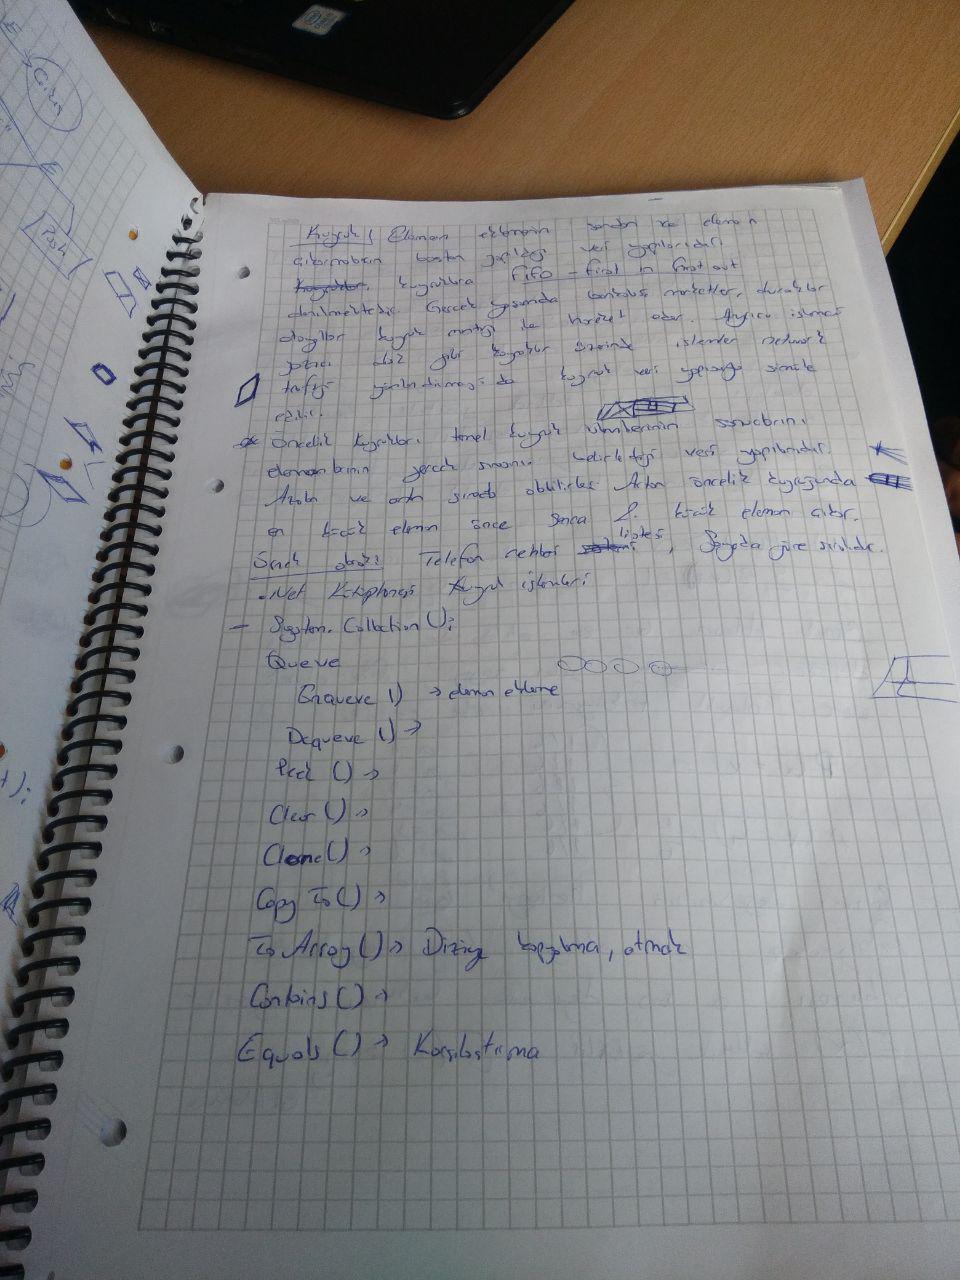 Çıkış
E
Push
Kuyruk; Eleman eklemenin sondan ve eleman
çıkarmanın baştan yapıldığı veri yapılarıdır.
kuyruklara FIFO - first in first out
denilmektedir. Gerçek yaşamda bankalar, marketler, duraklar
kuyruk mantığı ile hareket eder. Ayrıca işlemci
yazıcı gibi kaynaklar üzerinde işlemler network
trafiği yönlendirmesi de kuyruk veri yapısıyla simüle
edilir.
Öncelik kuyrukları temel kuyruk
elemanlarının gerçek sırasını belirlediği veri yapılarıdır.
Azalan ve artan sırada olabilirler. Artan öncelik kuyruğunda
en küçük eleman önce sonra 2. küçük eleman çıkar.
Telefon rehberi listesi, Soyada göre sıralıdır.
.Net Kütüphanesi Kuyruk işlemleri
- System. Collection ();
Queue
Enqueue () → eleman ekleme
Dequeue () →
Peek () →
Clear () →
Clone () →
Copy To () →
To Array () → Diziye kopyalama, atmak
Contains () →
Equals () → Karşılaştırma